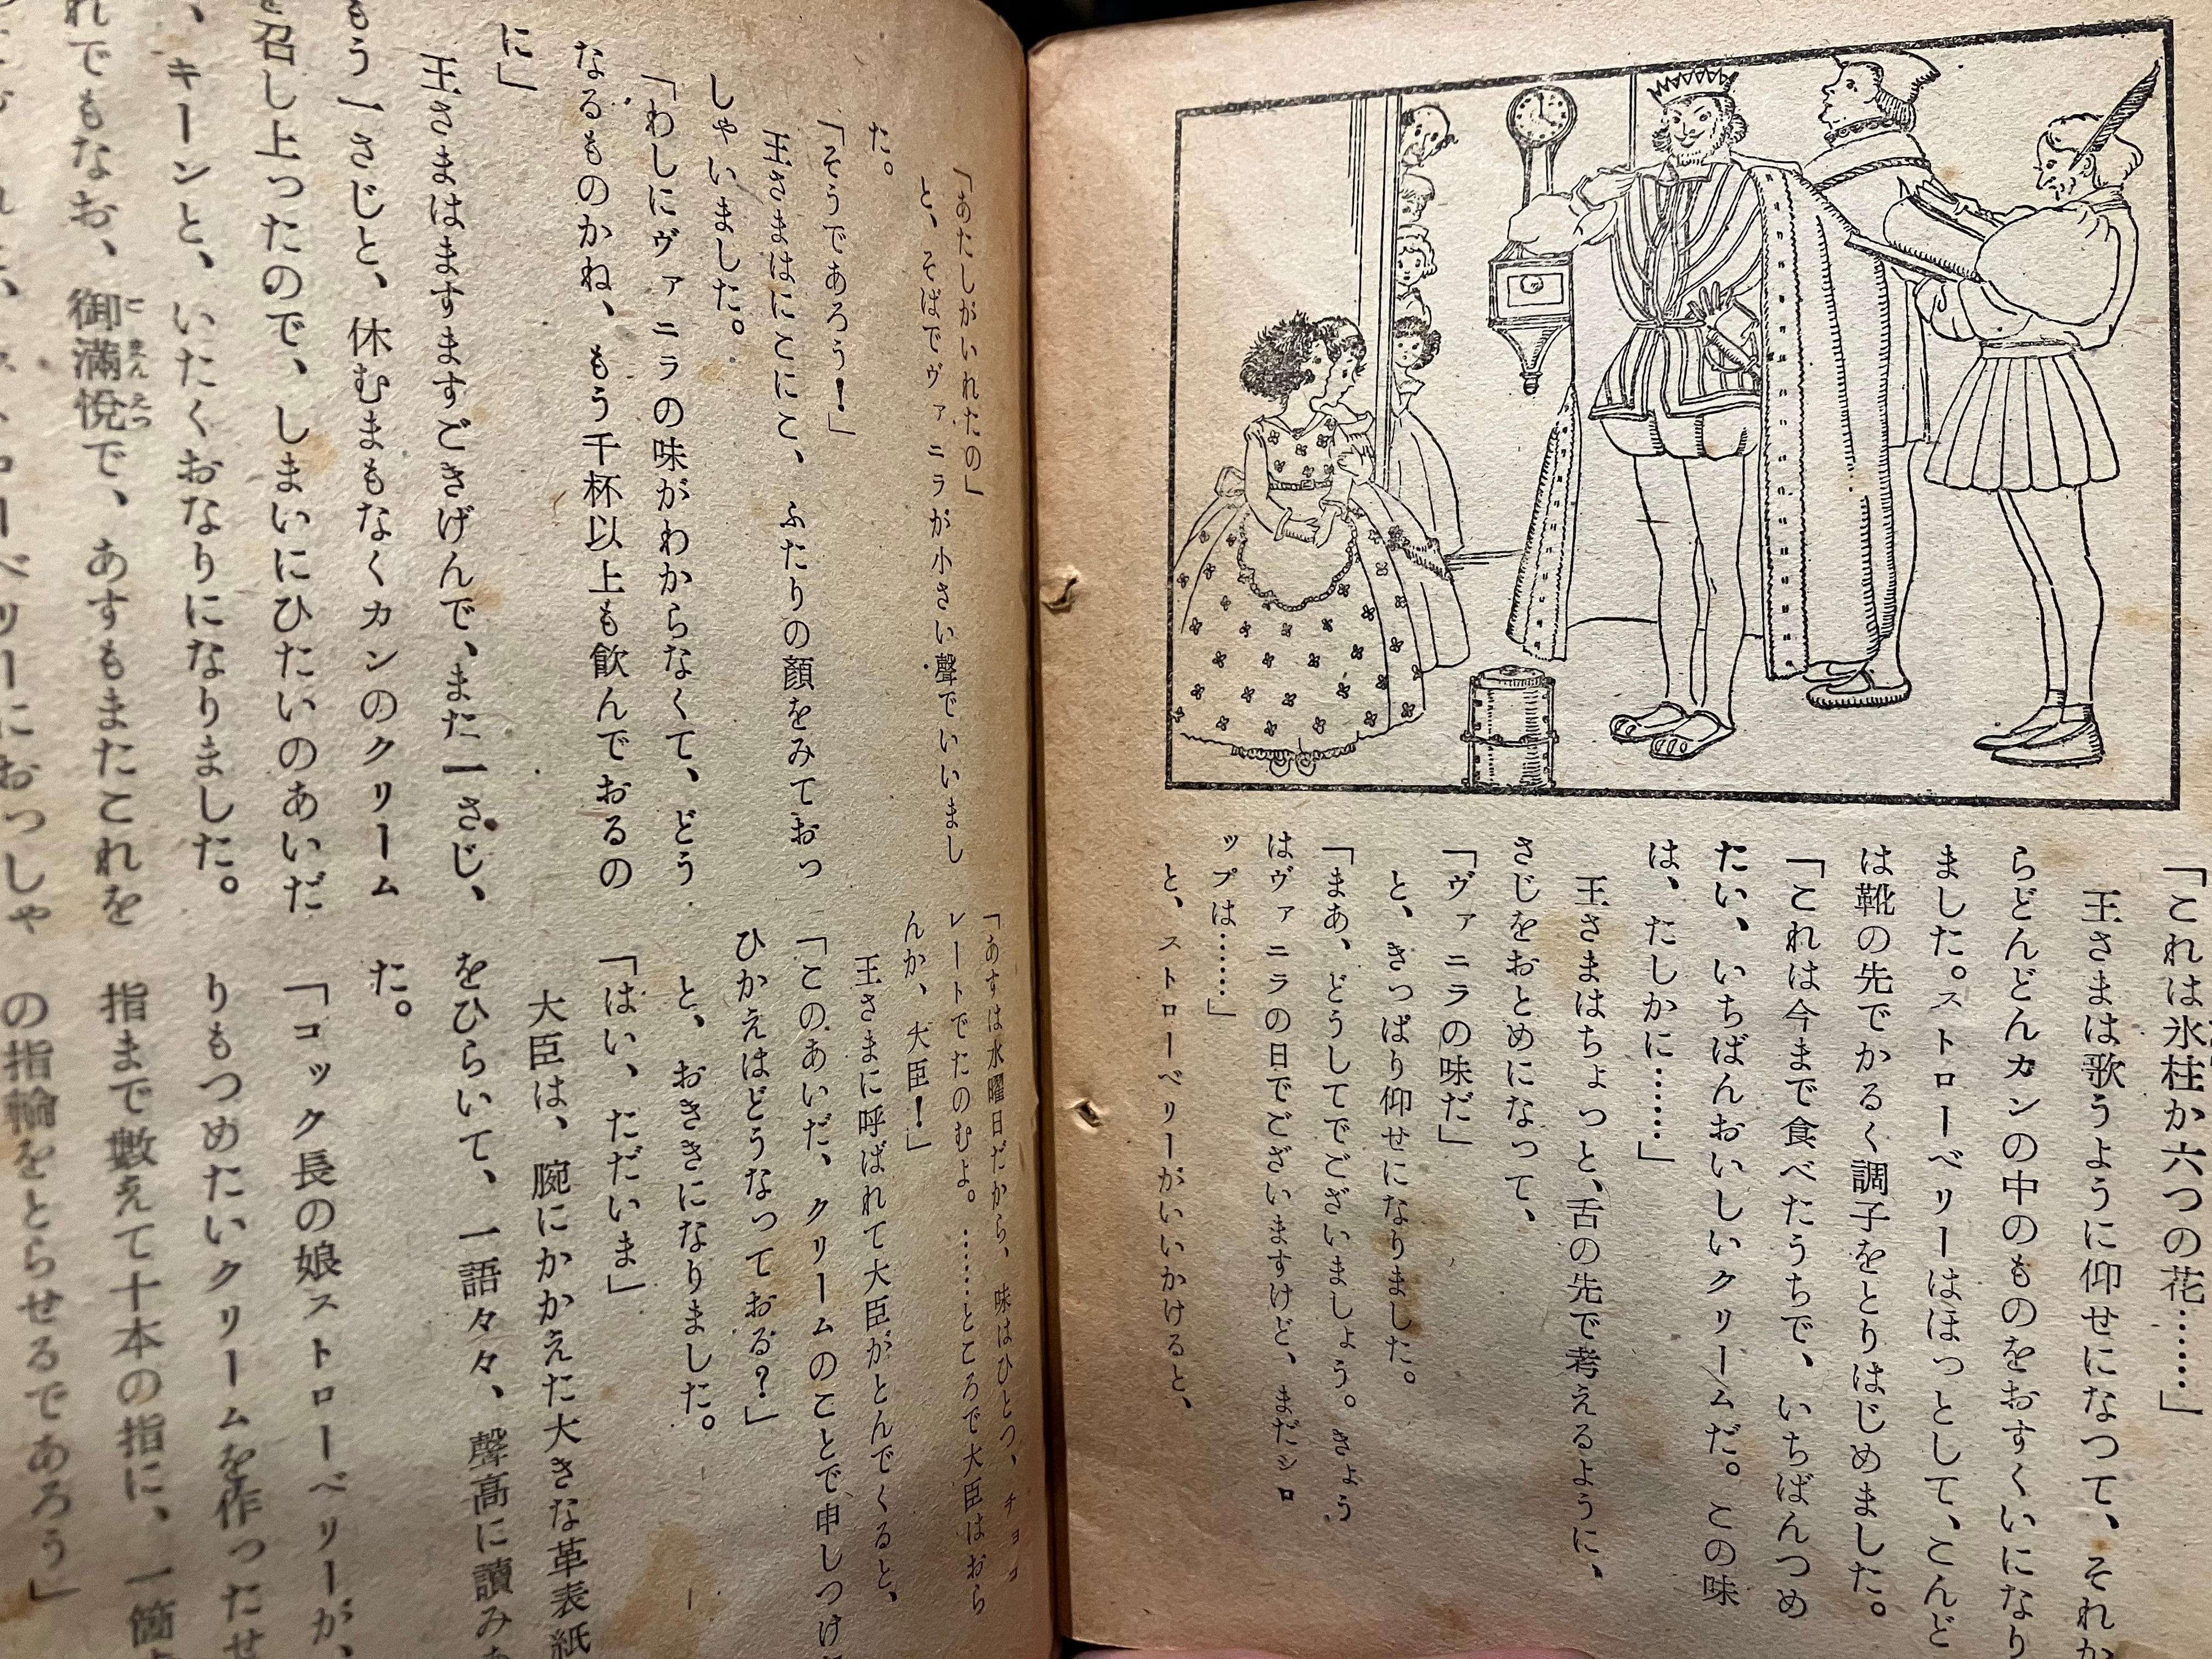 「これは氷柱か六つの花……」
王さまは歌うように仰せになつて、それか
らどんどんカンの中のものをおすくいになり
ました。ストローベリーはほっとして、こんど
は靴の先でかるく調子をとりはじめました。
「これは今まで食べたうちで、いちばんつめ
たい、いちばんおいしいクリームだ。この味
は、たしかに……」
王さまはちょっと、舌の先で考えるように、
さじをおとめになって、
「ヴァニラの味だ」
と、きっぱり仰せになりました。
「まあ、どうしてでございましょう。きょう
はヴァニラの日でございますけど、まだシロ
ップは……」
と、ストローベリーがいいかけると、
「あたしがいれたの」
と、そばでヴァニラが小さい聲でいいまし
た。
「そうであろう!」
王さまはにこにこ、ふたりの顏をみておっ
しゃいました。
「わしにヴァニラの味がわからなくて、どう
なるものかね、もう千杯以上も飲んでおるの
に」
王さまはますますごきげんで、また一さじ、
もう一さじと、休むまもなくカンのクリーム
を召し上ったので、しまいにひたいのあいだ
、キーンと、いたくおなりになりました。
れでもなお、御滿悅で、あすもまたこれを
ローベリーにおっしゃ
「あすは水曜日だから、味はひとつ、チョコ
レートでたのむよ。……ところで大臣はおら
んか、大臣!」
王さまに呼ばれて大臣がとんでくると、
「このあいだ、クリームのことで申しつけ
ひかえはどうなっておる?」
と、おききになりました。
「はい、ただいま」
大臣は、腕にかかえた大きな革表紙
をひらいて、一語々々、聲高に讀み
た。
「コック長の娘ストローベリーが、
りもつめたいクリームを作ったせ
指まで數えて十本の指に、一箇
の指輪をとらせるであろう」